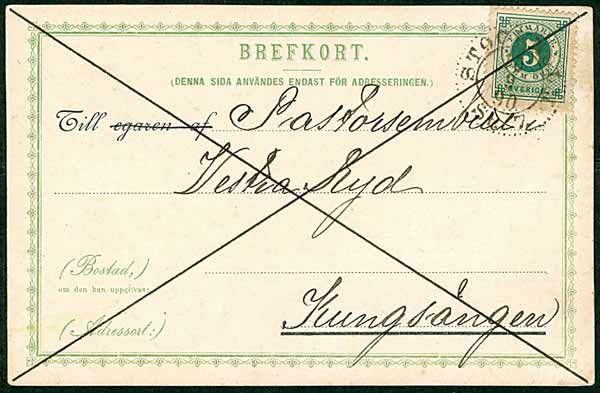 BREFKORT.
(DENNA SIDA ANVÄNDES ENDAST FÖR ADRESSERINGEN.)
FRIMÄRKE
5
FEM ÖRE
SVERIGE
Till egaren af Pastorsembetet
Vestra Ryd
(Bostad,)
om den kan uppgifvas:
(Adressort:) Kungsängen